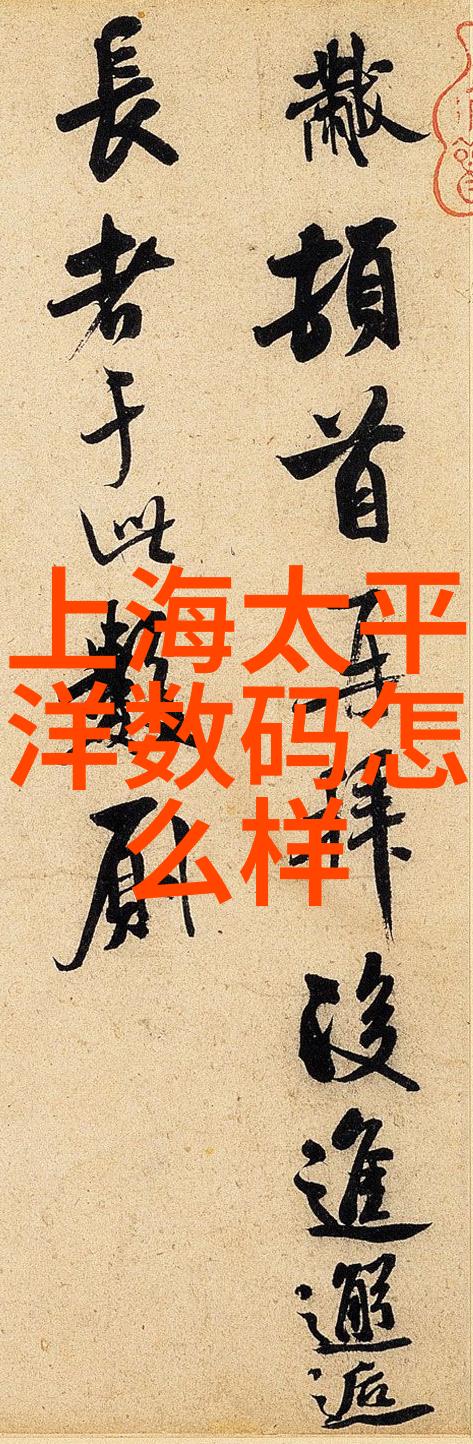 黻頓首再拜後進邂逅
長者于此數厠
上海太平
洋数码怎
么样